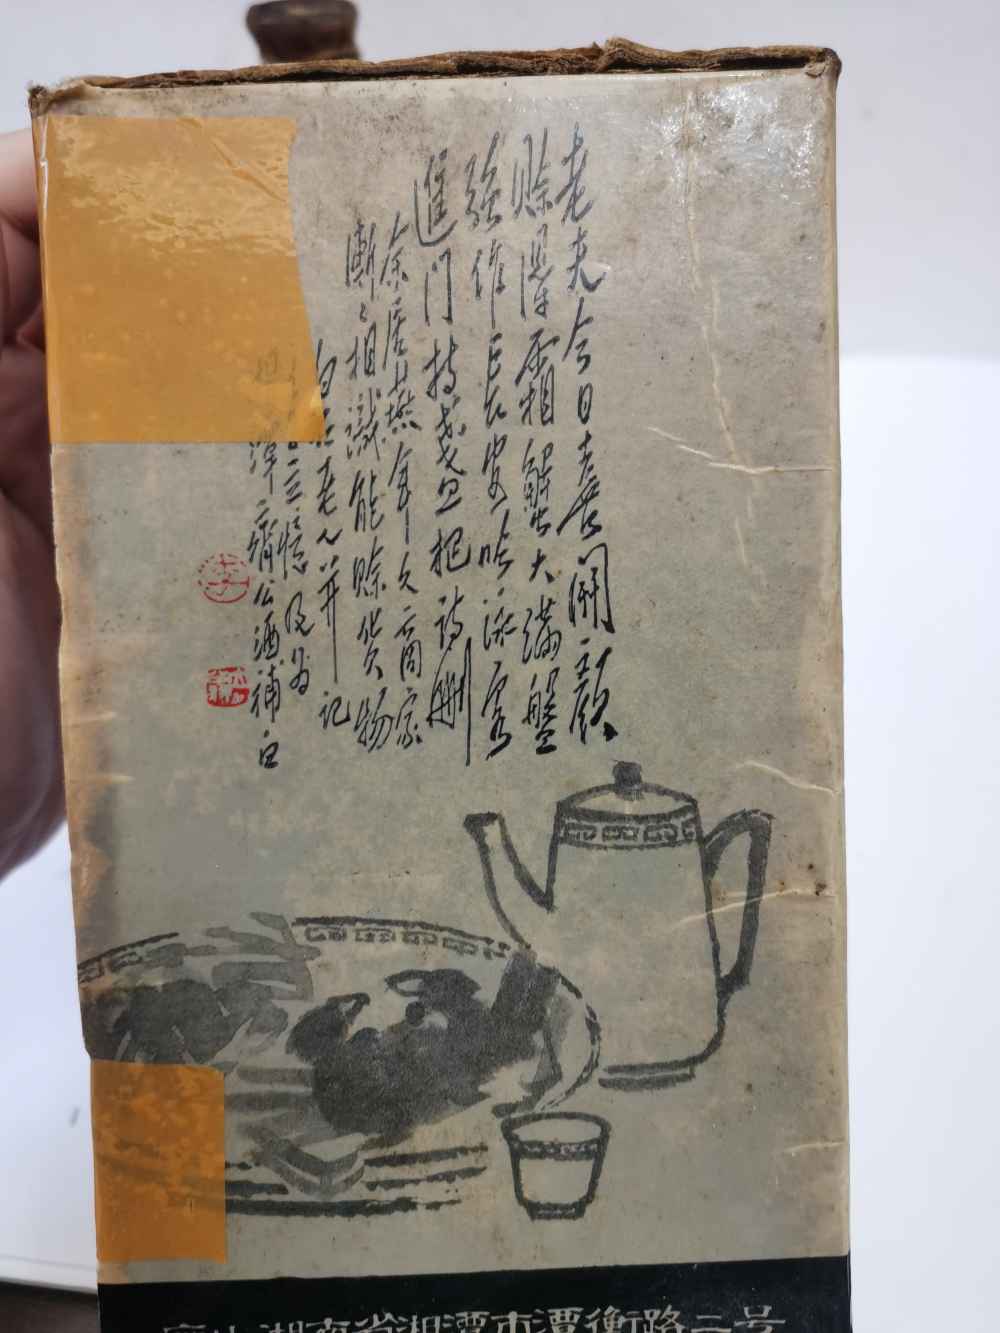 老夫今日喜开颜
赊得霜蟹大满盘
强作长安吟咏客
进门持盏且把诗删
余居燕年久商家
渐〻相识能赊货物
白石老人并记
忆及为
湘潭齐公酒补白
湖南省湘潭市潭衡路二号